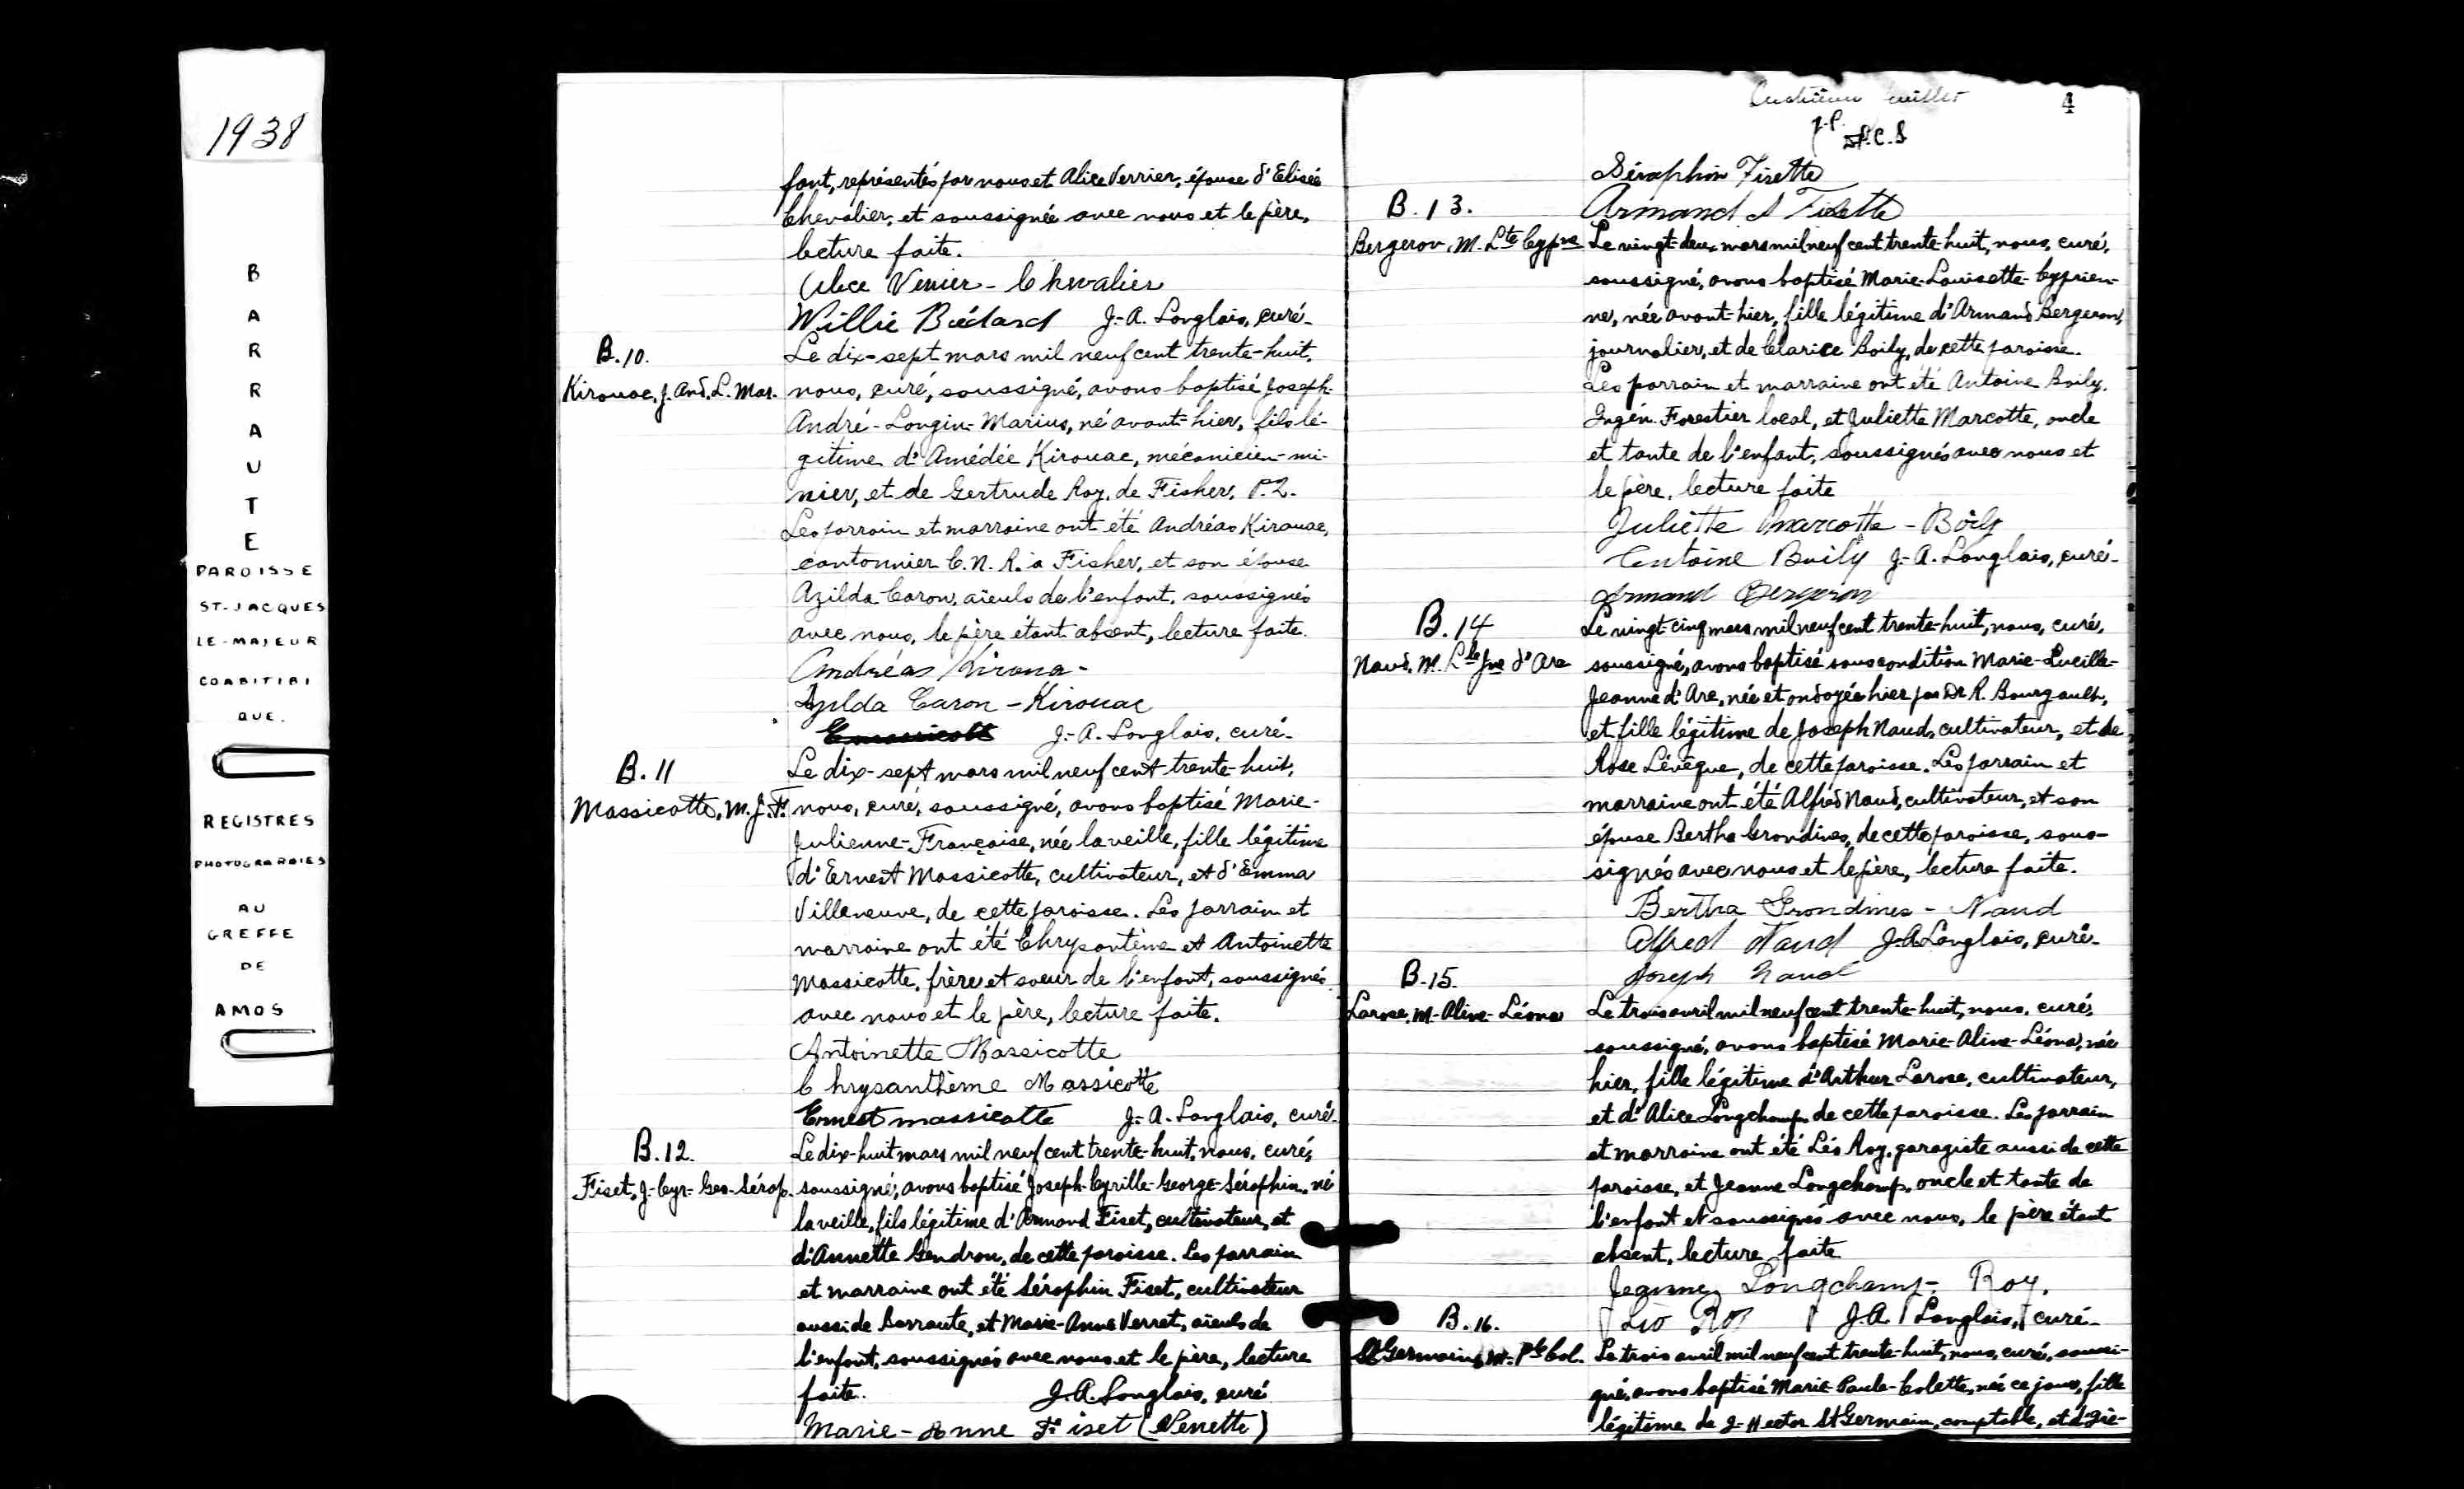 1938
B
A
R
R
A
U
T
E
PAROISSE
ST-JACQUES
LE-MAJEUR
COABITIBI
QUE.
REGISTRES
PHOTOGRAPHIES
AU
GREFFE
DE
AMOS
fant, représentés par nous et Alice Verrier, épouse d'Elisée
Chevalier, et soussignée avec nous et le père,
lecture faite.
Alice Verrier - Chevalier
Willie Bédard J.-A. Langlais, curé.
B.10.
Kirouac, J. And. L. Mar.
Le dix-sept mars mil neuf cent trente-huit,
nous, curé, soussigné, avons baptisé Joseph-
André-Longin-Marius, né avant-hier, fils lé-
gitime d'Amédée Kirouac, mécanicien-mi-
nier, et de Gertrude Roy, de Fisher, P.Q.
Les parrain et marraine ont été Andréas Kirouac,
cantonnier C.N.R. à Fisher, et son épouse
Azilda Caron, aïeuls de l'enfant, soussignés
avec nous, le père étant absent, lecture faite.
Andréas Kiroua-
Azilda Caron - Kirouac
J.-A. Langlais, curé.
B.11
Massicotte, M.J.F.
Le dix-sept mars mil neuf cent trente-huit,
nous, curé, soussigné, avons baptisé Marie-
Julienne-Françoise, née la veille, fille légitime
d'Ernest Massicotte, cultivateur, et d'Emma
Villeneuve, de cette paroisse. Les parrain et
marraine ont été Chrysantème et Antoinette
Massicotte, frère et soeur de l'enfant, soussignés
avec nous et le père, lecture faite.
Antoinette Massicotte
Chrysanthème Massicotte
Ernest massicotte J.-A. Langlais, curé.
B.12.
Fiset, J-Cyr-Geo-Sérap.
Le dix-huit mars mil neuf cent trente-huit, nous, curé,
soussigné, avons baptisé Joseph-Cyrille-George-Séraphin, né
la veille, fils légitime d'Armand Fiset, cultivateur, et
d'Annette Gendron, de cette paroisse. Les parrain
et marraine ont été Séraphin Fiset, cultivateur
aussi de Barraute, et Marie-Anne Verret, aïeuls de
l'enfant, soussignés avec nous et le père, lecture
faite. J.A. Langlais, curé
Marie-Anne Fiset (Verrette)
4
J-P.
J.C.S
Séraphin Fisette
Armand Fisette
B.13.
Bergeron, M. Lte Cypne
Le vingt-deux mars mil neuf cent trente-huit, nous, curé,
soussigné, avons baptisé Marie-Louisette-Cyprien-
ne, née avant-hier, fille légitime d'Armand Bergeron,
journalier, et de Clarice Boily, de cette paroisse.
Les parrain et marraine ont été Antoine Boily,
Ingén. Forestier local, et Juliette Marcotte, oncle
et tante de l'enfant, soussignés avec nous et
le père, lecture faite
Juliette Marcotte - Boily
Antoine Boily J.-A. Langlais, curé.
Armand Bergeron
B.14
Naud, M. Lle Jne d'Arc
Le vingt-cinq mars mil neuf cent trente-huit, nous, curé,
soussigné, avons baptisé sous condition Marie-Lucille-
Jeanne d'Arc, née et ondoyée hier par Dr R. Bourgault,
et fille légitime de Joseph Naud, cultivateur, et de
Rose Lévêque, de cette paroisse. Les parrain et
marraine ont été Alfred Naud, cultivateur, et son
épouse Bertha Grondines, de cette paroisse, sous-
signés avec nous et le père, lecture faite.
Bertha Grondines - Naud
Alfred Naud J.A. Langlais, curé.
Joseph Naud
B.15.
Larose, M-Aline-Léona
Le trois avril mil neuf cent trente-huit, nous, curé,
soussigné, avons baptisé Marie-Aline-Léona, née
hier, fille légitime d'Arthur Larose, cultivateur,
et d'Alice Longchamps de cette paroisse. Les parrain
et marraine ont été Léo Roy, garagiste aussi de cette
paroisse, et Jeanne Longchamps, oncle et tante de
l'enfant et soussignés avec nous, le père étant
absent, lecture faite
Jeanne Longchamp - Roy.
Léo Roy J.A. Langlais, curé.
B.16.
St Germain, M-Ple Col.
Le trois avril mil neuf cent trente-huit, nous, curé, soussi-
gné, avons baptisé Marie-Paule-Colette, née ce jour, fille
légitime de J-Hector St Germain, comptable, et